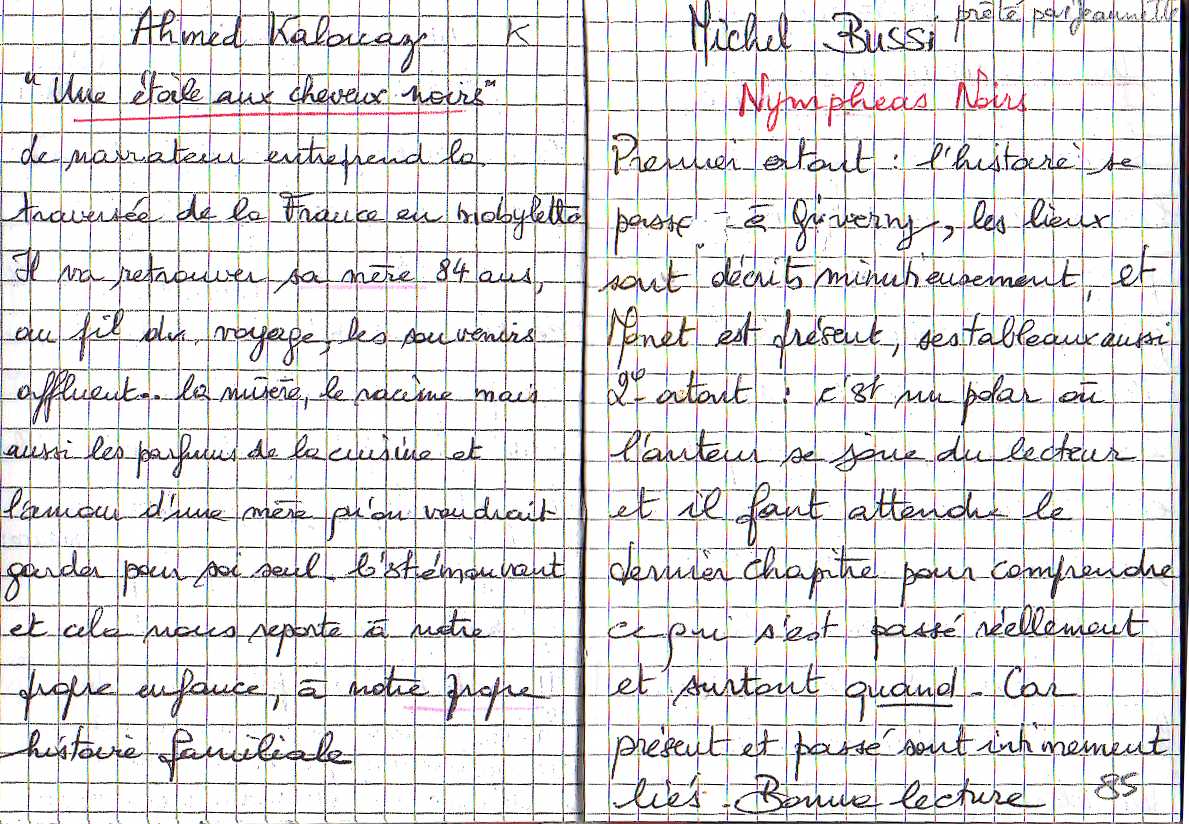 Ahmed Kalouaz K
"Une étoile aux cheveux noirs"
Le narrateur entreprend la
traversée de la France en mobylette
Il va retrouver sa mère 84 ans,
au fil du voyage, les souvenirs
affluent.. la misère, le racisme mais
aussi les parfums de la cuisine et
l'amour d'une mère qu'on voudrait
garder pour soi seul. C'est émouvant
et cela nous reporte à notre
propre enfance, à notre propre
histoire familiale
prêté par Jeannette
Michel Bussi
Nympheas Noirs
Premier atout : l'histoire se
passe à Giverny, les lieux
sont décrits minutieusement, et
Monet est présent, ses tableaux aussi
2e atout : c'est un polar où
l'auteur se joue du lecteur
et il faut attendre le
dernier chapitre pour comprendre
ce qui s'est passé réellement
et surtout quand - Car
présent et passé sont intimement
liés - Bonne lecture 85